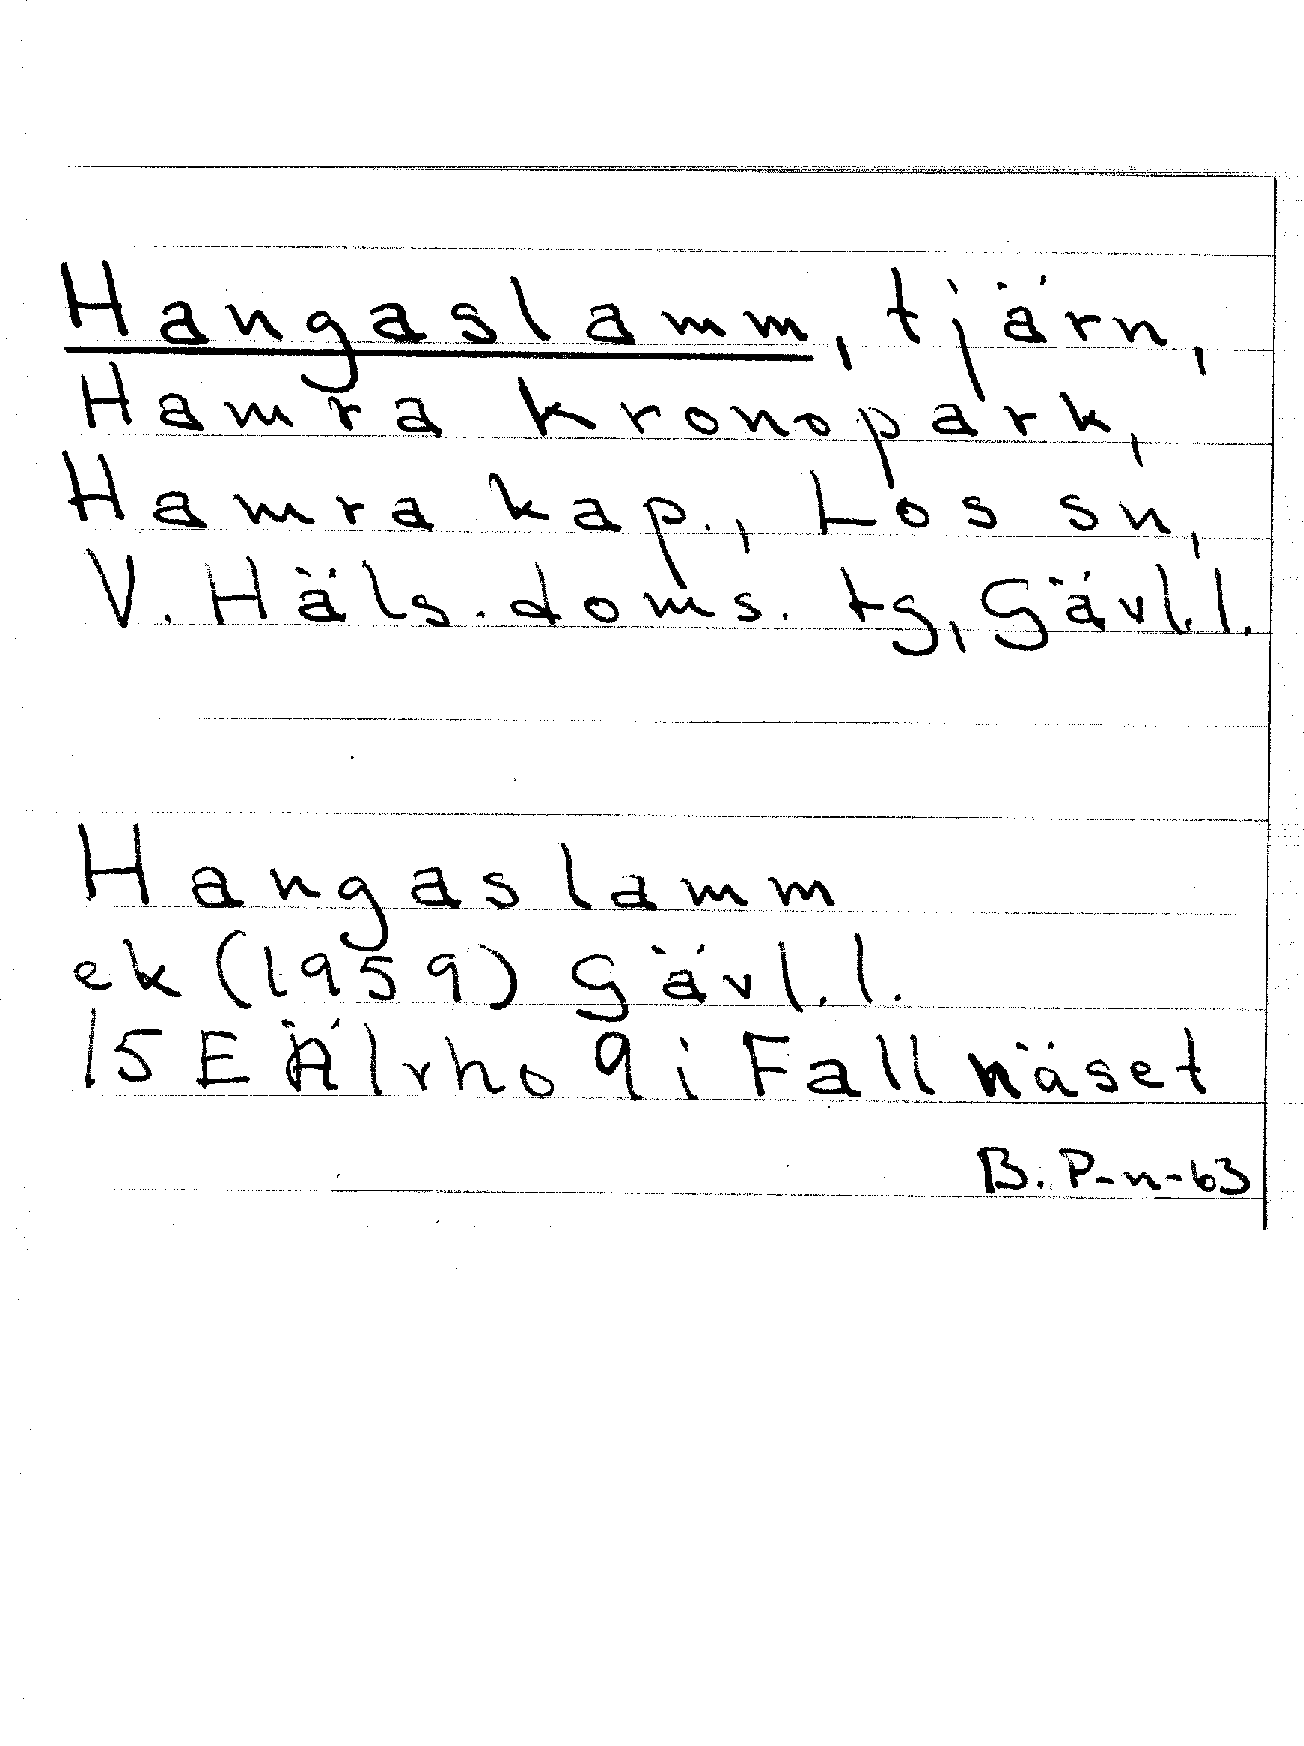 Hangaslamm, tjärn,
Hamra kronopark,
Hamra kap., Los sn,
V. Häls. doms. tg, Gävl. l.
Hangaslamm
ek (1959) Gävl. l.
15 E Älvho 9 i Fallnäset
B. P-n-63